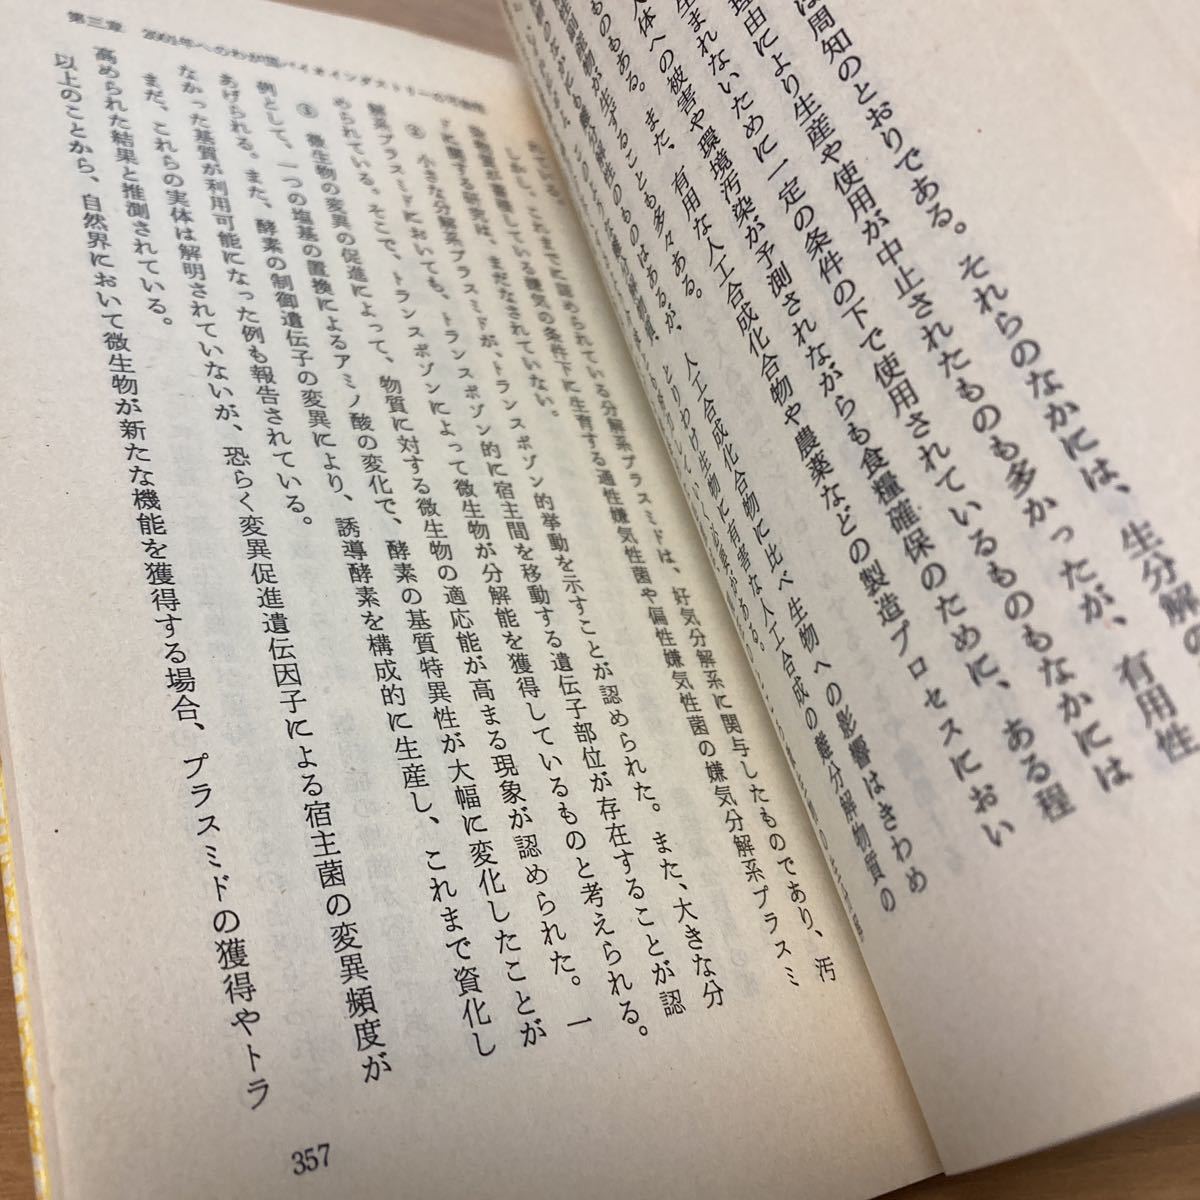 は周知のとおりである。それらのなかには、生分解の
理由により生産や使用が中止されたものも多かったが、有用性
生まれないために一定の条件の下で使用されているものもなかには
人体への被害や環境汚染が予測されながらも食糧確保のために、ある程
ものもある。また、有用な人工合成化合物や農薬などの製造プロセスにおい
副産物が生ずることも多々ある。
人工合成化合物に比べ生物への影響はきわめ
とりわけ生物に有害な人工合成の難分解物質の
第三章 2001年へのわが国バイオインダストリーの可能性
れている。
しかし、これまでに認められている分解系プラスミドは、好気分解系に関与したものであり、汚
が蓄積している嫌気的条件下に生育する通性嫌気性菌や偏性嫌気性菌の嫌気分解系プラスミ
ドに関する研究は、まだなされていない。
② 小さな分解系プラスミドが、トランスポゾン的挙動を示すことが認められた。また、大きな分
解系プラスミドにおいても、トランスポゾン的に宿主間を移動する遺伝子部位が存在することが認
められている。そこで、トランスポゾンによって微生物が分解能を獲得しているものと考えられる。
③ 微生物の変異の促進によって、物質に対する微生物の適応能が高まる現象が認められた。一
例として、一つの塩基の置換によるアミノ酸の変化で、酵素の基質特異性が大幅に変化したことが
あげられる。また、酵素の制御遺伝子の変異により、誘導酵素を構成的に生産し、これまで資化し
なかった基質が利用可能になった例も報告されている。
まだ、これらの実体は解明されていないが、恐らく変異促進遺伝因子による宿主菌の変異頻度が
高められた結果と推測されている。
以上のことから、自然界において微生物が新たな機能を獲得する場合、プラスミドの獲得やトラ
357